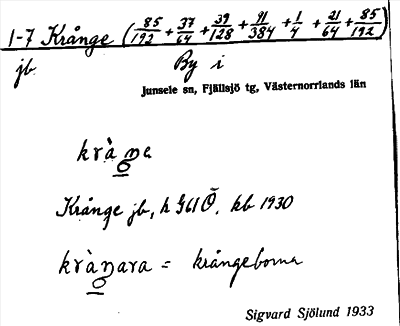 1-7 Krånge (85/192 + 37/64 + 39/128 + 91/384 + 1/4 + 21/64 + 85/192)
jb. By i
Junsele sn, Fjällsjö tg, Västernorrlands län
Krånge jb, h G61Ö, kb 1930
= krångeborna
Sigvard Sjölund 1933